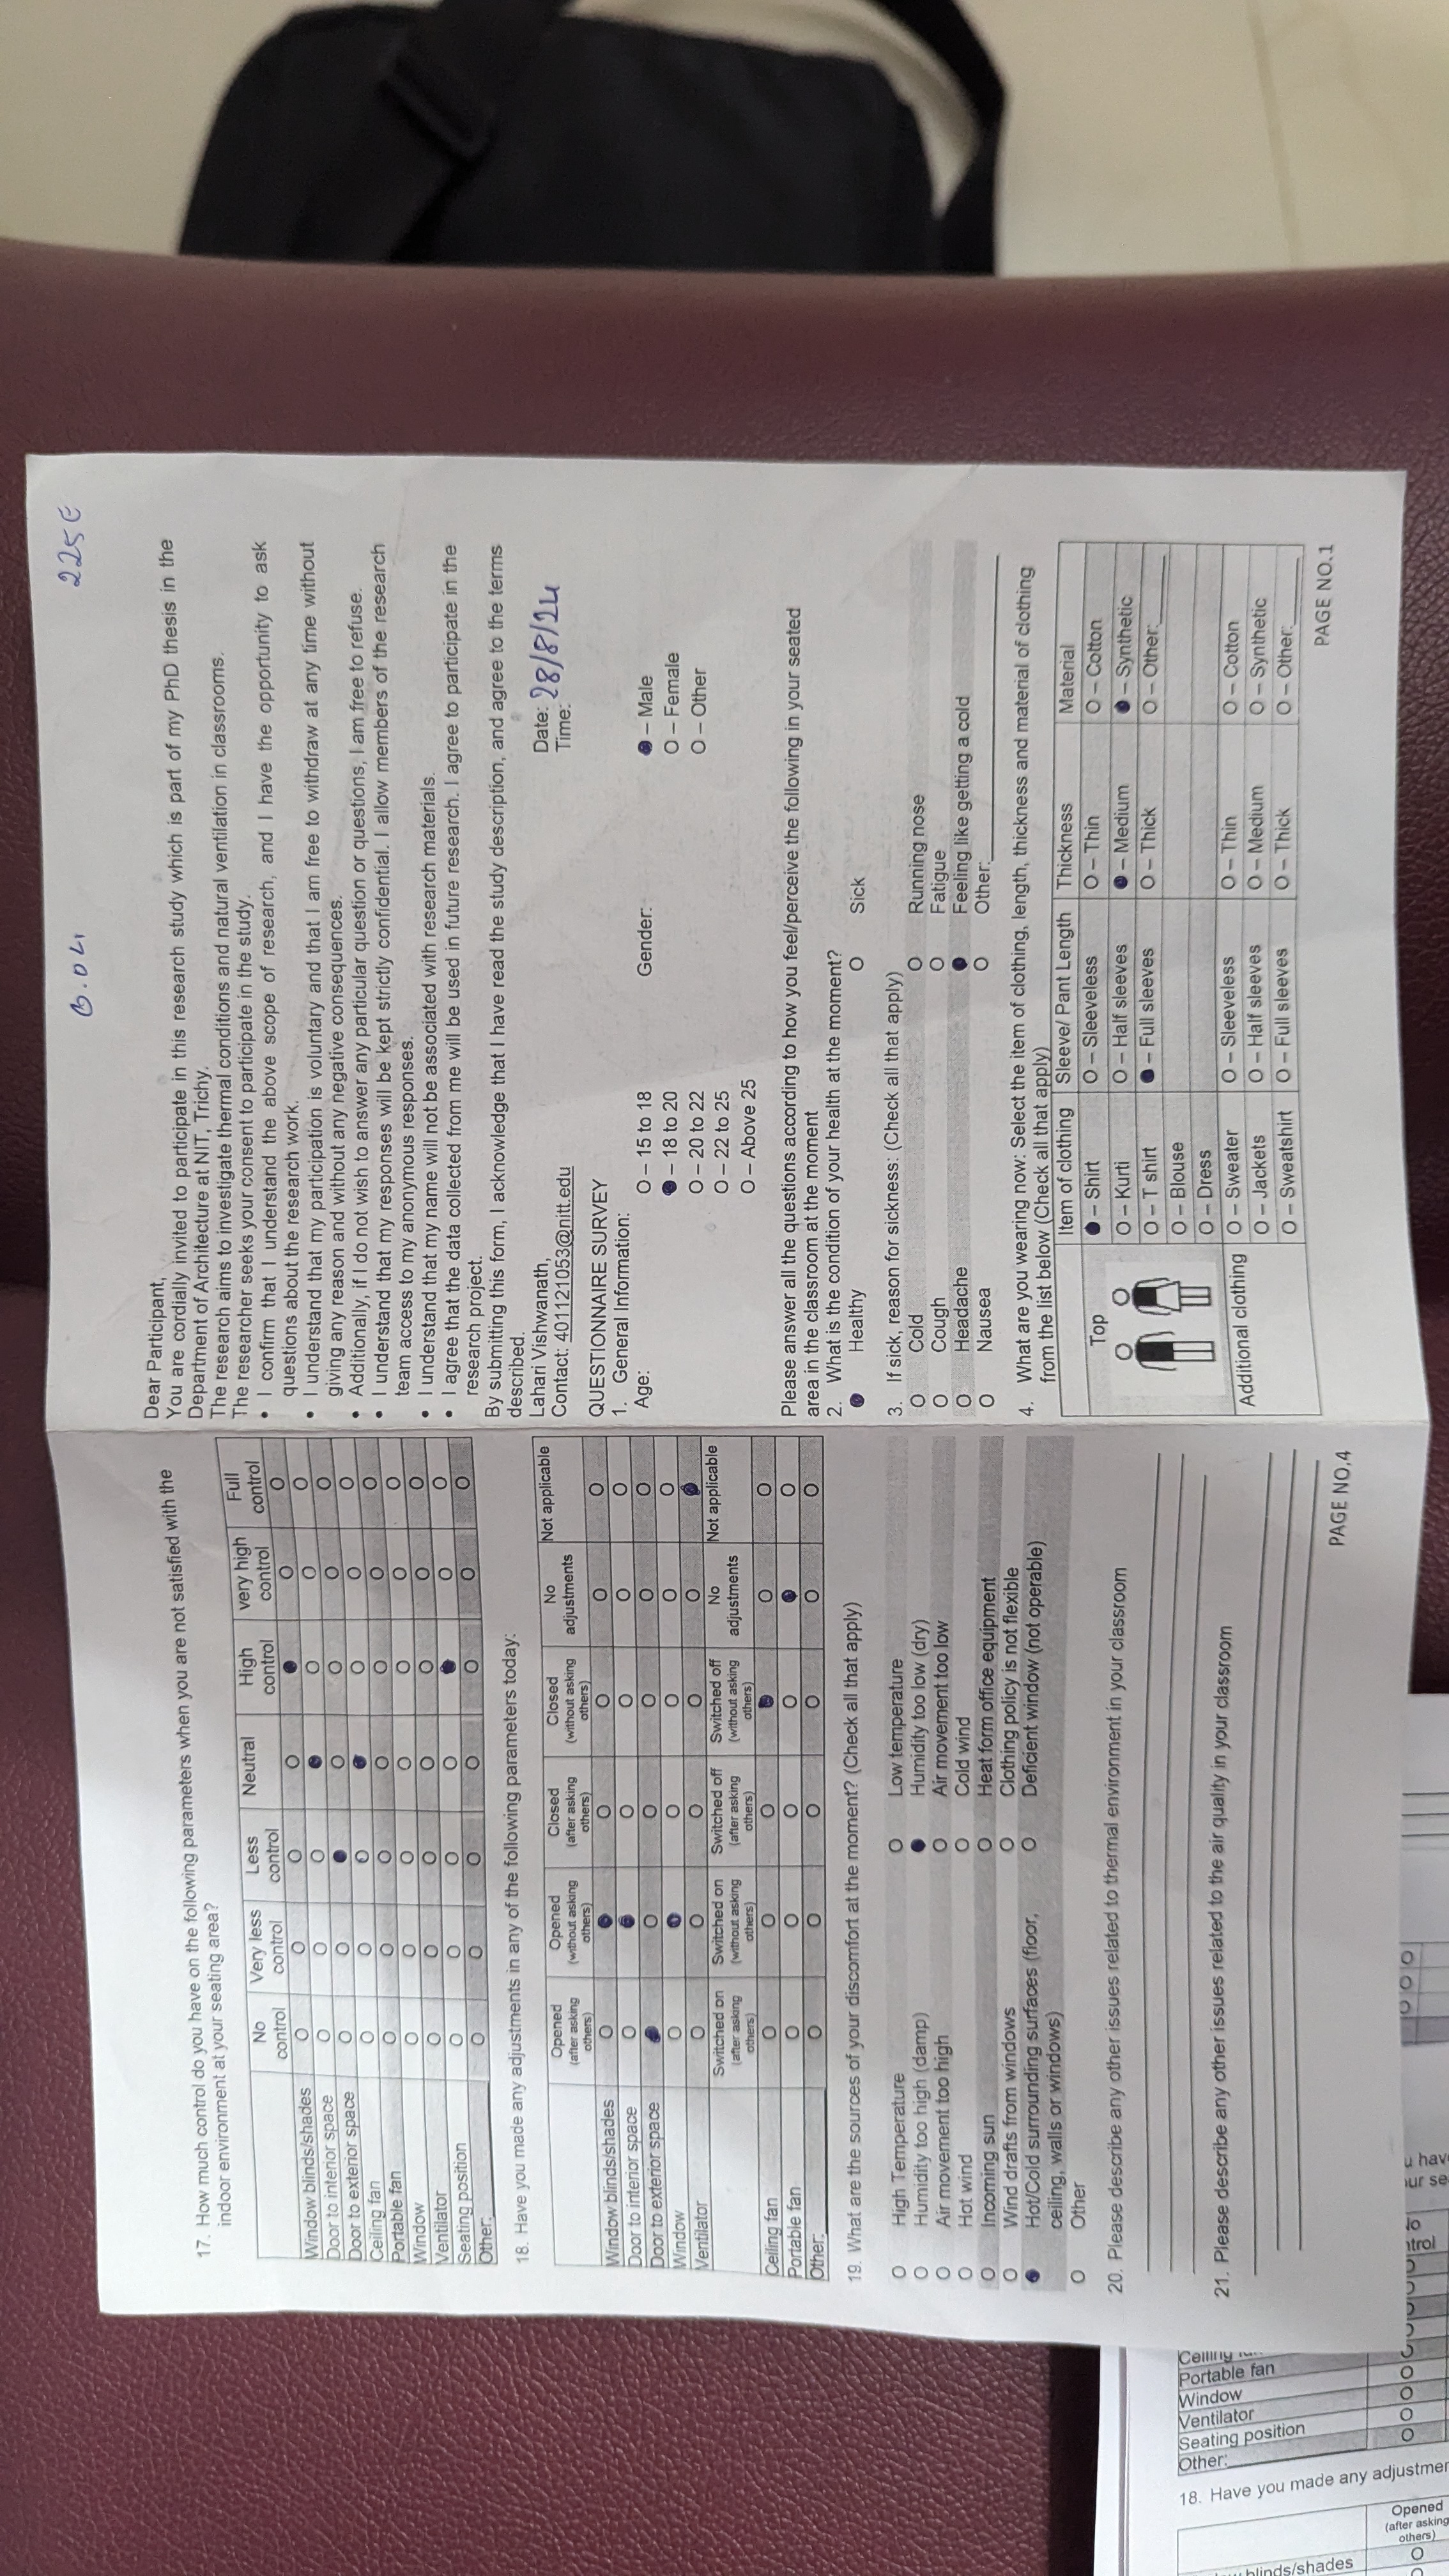 17. How much control do you have on the following parameters when you are not satisfied with the
indoor environment at your seating area?
No control Very less control Less control Neutral High control very high control Full control
Window blinds/shades O O O O ● O O
Door to interior space O O O ● O O O
Door to exterior space O O ● O O O O
Ceiling fan O O O ● O O O
Portable fan O O O O O O O
Window O O O O O O O
Ventilator O O O O O O O
Seating position O O O O ● O O
Other: O O O O O O O
18. Have you made any adjustments in any of the following parameters today:
Opened (after asking others) Opened (without asking others) Closed (after asking others) Closed (without asking others) No adjustments Not applicable
Window blinds/shades O ● O O O O
Door to interior space O ● O O O O
Door to exterior space ● O O O O O
Window O ● O O O O
Ventilator O O O O O ●
Switched on (after asking others) Switched on (without asking others) Switched off (after asking others) Switched off (without asking others) No adjustments Not applicable
Ceiling fan O O O ● O O
Portable fan O O O O ● O
Other: O O O O O O
19. What are the sources of your discomfort at the moment? (Check all that apply)
O High Temperature O Low temperature
O Humidity too high (damp) ● Humidity too low (dry)
O Air movement too high O Air movement too low
O Hot wind O Cold wind
O Incoming sun O Heat form office equipment
O Wind drafts from windows O Clothing policy is not flexible
● Hot/Cold surrounding surfaces (floor, O Deficient window (not operable)
ceiling, walls or windows)
O Other
20. Please describe any other issues related to thermal environment in your classroom
21. Please describe any other issues related to the air quality in your classroom
PAGE NO.4
225E
Dear Participant,
You are cordially invited to participate in this research study which is part of my PhD thesis in the
Department of Architecture at NIT, Trichy.
The research aims to investigate thermal conditions and natural ventilation in classrooms.
The researcher seeks your consent to participate in the study.
• I confirm that I understand the above scope of research, and I have the opportunity to ask
questions about the research work.
• I understand that my participation is voluntary and that I am free to withdraw at any time without
giving any reason and without any negative consequences.
• Additionally, if I do not wish to answer any particular question or questions, I am free to refuse.
• I understand that my responses will be kept strictly confidential. I allow members of the research
team access to my anonymous responses.
• I understand that my name will not be associated with research materials.
• I agree that the data collected from me will be used in future research. I agree to participate in the
research project.
By submitting this form, I acknowledge that I have read the study description, and agree to the terms
described.
Lahari Vishwanath, Date: 28/8/24
Contact: 401121053@nitt.edu Time:
QUESTIONNAIRE SURVEY
1. General Information:
Age: O – 15 to 18 Gender: ● – Male
● – 18 to 20 O – Female
O – 20 to 22 O – Other
O – 22 to 25
O – Above 25
Please answer all the questions according to how you feel/perceive the following in your seated
area in the classroom at the moment
2. What is the condition of your health at the moment?
● Healthy O Sick
3. If sick, reason for sickness: (Check all that apply)
O Cold O Running nose
O Cough O Fatigue
O Headache ● Feeling like getting a cold
O Nausea O Other:
4. What are you wearing now: Select the item of clothing, length, thickness and material of clothing
from the list below (Check all that apply)
Item of clothing Sleeve/ Pant Length Thickness Material
Top ● – Shirt O – Sleeveless O – Thin O – Cotton
O – Kurti O – Half sleeves ● – Medium ● – Synthetic
O – T shirt ● – Full sleeves O – Thick O – Other:
O – Blouse
O – Dress
Additional clothing O – Sweater O – Sleeveless O – Thin O – Cotton
O – Jackets O – Half sleeves O – Medium O – Synthetic
O – Sweatshirt O – Full sleeves O – Thick O – Other:
PAGE NO.1
Portable fan
Window
Ventilator
Seating position
Other:
18. Have you made any
Opened
(after asking
others)